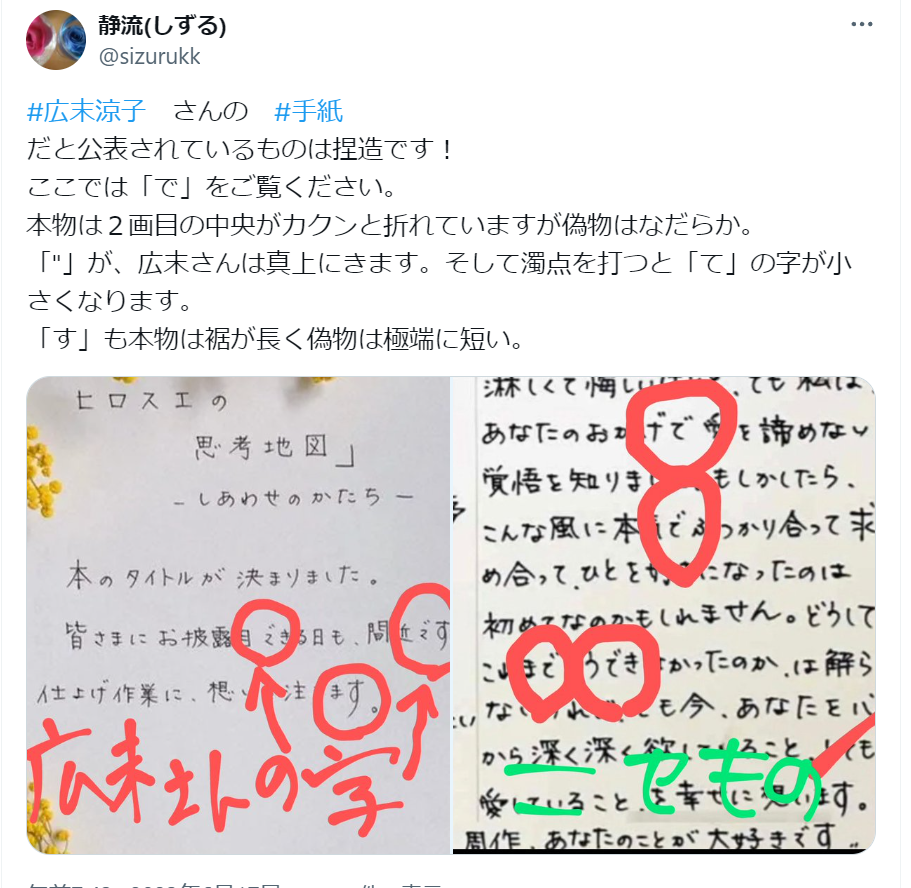 静流(しずる)
@sizurukk
#広末涼子 さんの #手紙
だと公表されているものは捏造です！
ここでは「で」をご覧ください。
本物は２画目の中央がカクンと折れていますが偽物はなだらか。
「"」が、広末さんは真上にきます。そして濁点を打つと「て」の字が小
さくなります。
「す」も本物は裾が長く偽物は極端に短い。
ヒロスエの
思考地図」
-しあわせのかたちー
本のタイトルが決まりました。
皆さまにお披露目できる日も、間近です
仕上げ作業に、想い 注 ます。
広末さんの字
淋しくて悔しい 、でも私は、
あなたのおかげで愛を諦めない
覚悟を知りま もしかしたら、
こんな風に本気でぶつかり合って求
め合って、ひとを好きになったのは
初めてなのかもしれません。どうして
これまで うできなかったのか、は解ら
ない も今、あなたを心
から深く深く欲していること、とても
愛していること、を幸せに思います。
周作、あなたのことが大好きです
ニセもの